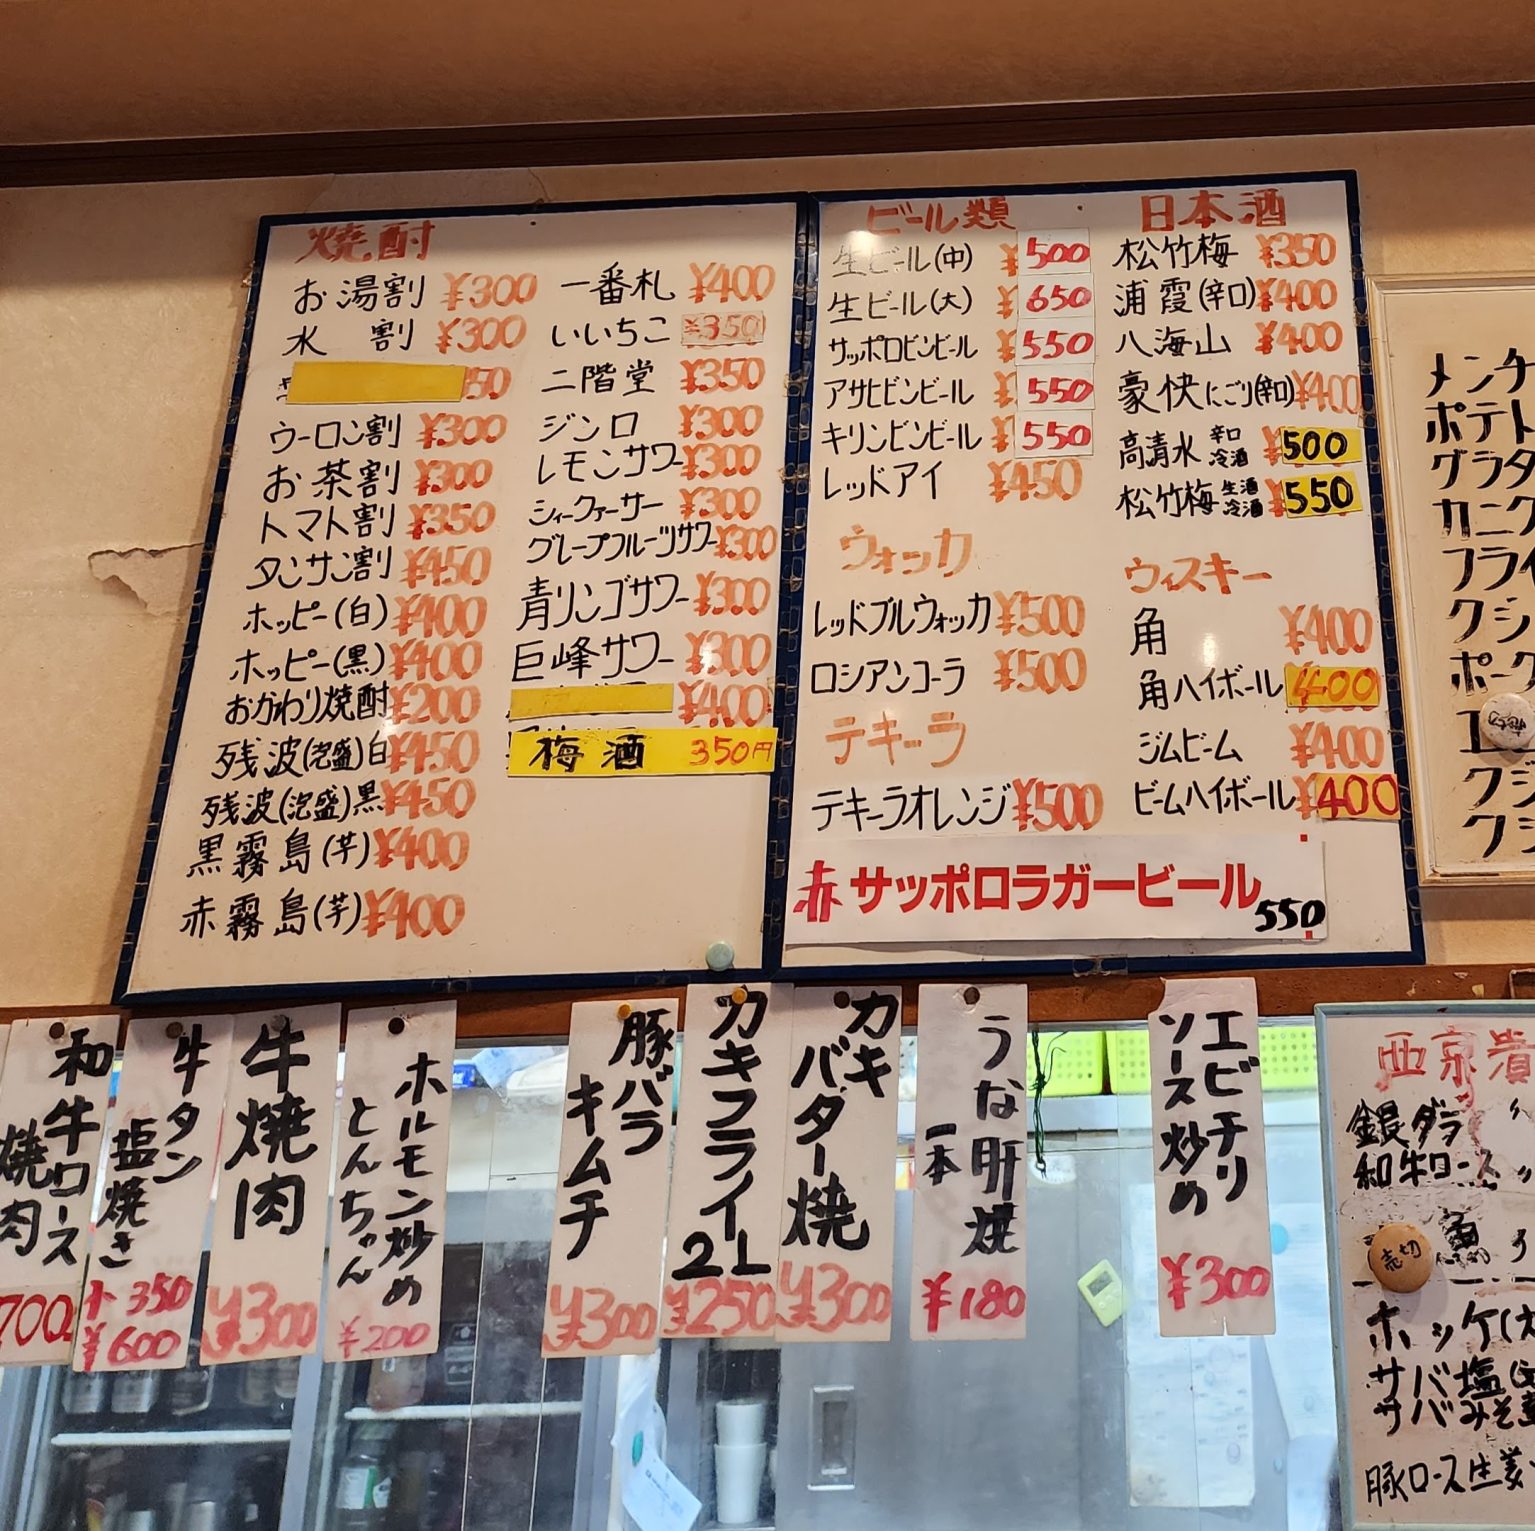 焼酎
お湯割 ¥300
水割 ¥300
50
ウーロン割 ¥300
お茶割 ¥300
トマト割 ¥350
タンサン割 ¥450
ホッピー(白) ¥400
ホッピー(黒) ¥400
おかわり焼酎 ¥200
残波(泡盛)白 ¥450
残波(泡盛)黒 ¥450
黒霧島(芋) ¥400
赤霧島(芋) ¥400
一番札 ¥400
いいちこ ¥350
二階堂 ¥350
ジンロ ¥300
レモンサワー ¥300
シィークァーサー ¥300
グレープフルーツサワー ¥300
青リンゴサワー ¥300
巨峰サワー ¥300
¥400
梅酒 350円
ビール類
生ビール(中) ¥500
生ビール(大) ¥650
サッポロビンビール ¥550
アサヒビンビール ¥550
キリンビンビール ¥550
レッドアイ ¥450
ウォッカ
レッドブルウォッカ ¥500
ロシアンコーラ ¥500
テキーラ
テキーラオレンジ ¥500
日本酒
松竹梅 ¥350
浦霞(辛口) ¥400
八海山 ¥400
豪快にごり(辛口) ¥400
高清水 辛口冷酒 ¥500
松竹梅 生酒冷酒 ¥550
ウィスキー
角 ¥400
角ハイボール ¥400
ジムビーム ¥400
ビームハイボール ¥400
赤サッポロラガービール 550
メンチ
ポテト
グラタ
カニク
フライ
クジ
ポーク
クジ
クジ
和牛ロース
焼肉
700
牛タン
塩焼き
小350
¥600
牛焼肉
¥300
ホルモン炒め
とんちゃん
¥200
豚バラ
キムチ
¥300
カキフライ
2L
¥250
カキ
バター焼
¥300
うな肝焼
一本
¥180
エビチリ
ソース炒め
¥300
西京漬
銀ダラ
和牛ロース
売切
魚
ホッケ(大
サバ塩(
サバみそ
豚ロース生姜